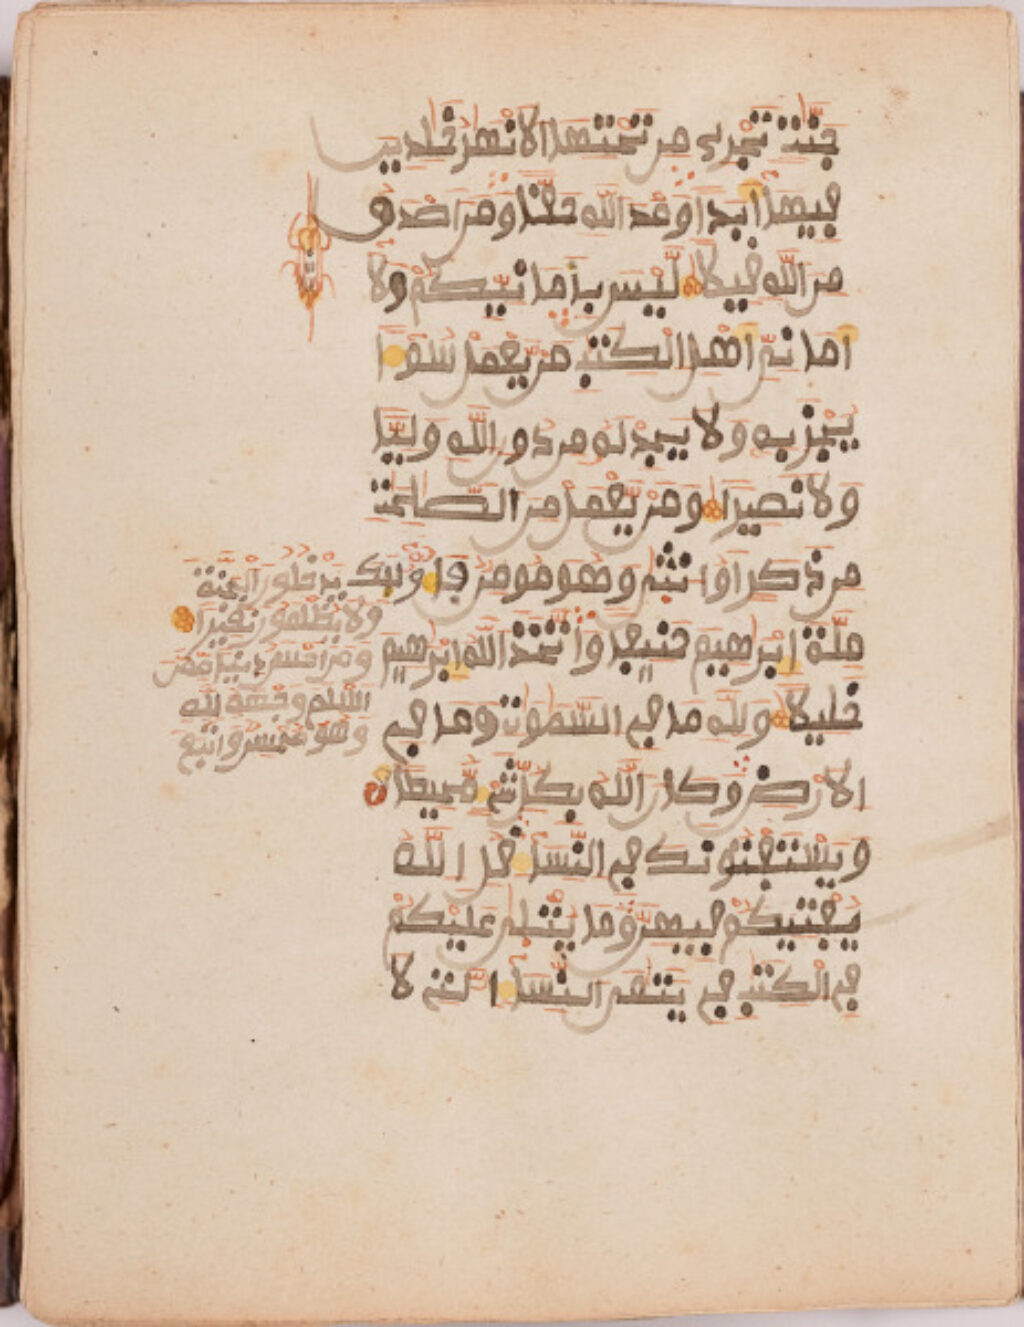 جنت تجرى من تحتها الانهر خلدين
فيها ابدا وعد الله حقا ومن اصدق
من الله قيلا ليس بامانيكم ولا
امانى اهل الكتب من يعمل سوءا
يجز به ولا يجد له من دون الله وليا
ولا نصيرا ومن يعمل من الصلحت
من ذكر او انثى وهو مومن فاوليك
يدخلون الجنة
ولا يظلمون نقيرا
ومن احسن دينا ممن
اسلم وجهه لله
وهو محسن واتبع
ملة ابرهيم حنيفا واتخذ الله ابرهيم
خليلا ولله ما فى السموت وما فى
الارض وكان الله بكل شى محيطا
ويستفتونك فى النسا قل الله
يفتيكم فيهن وما يتلى عليكم
فى الكتب فى يتمى النسا التى لا